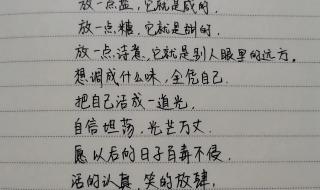 放一点盐，它就是咸的，
放一点糖，它就是甜的，
放一点诗意，它就是别人眼里的远方，
想调成什么味，全凭自己，
把自己活成一道光，
自信坦荡，光芒万丈，
愿以后的日子百毒不侵，
活的认真，笑的放肆，